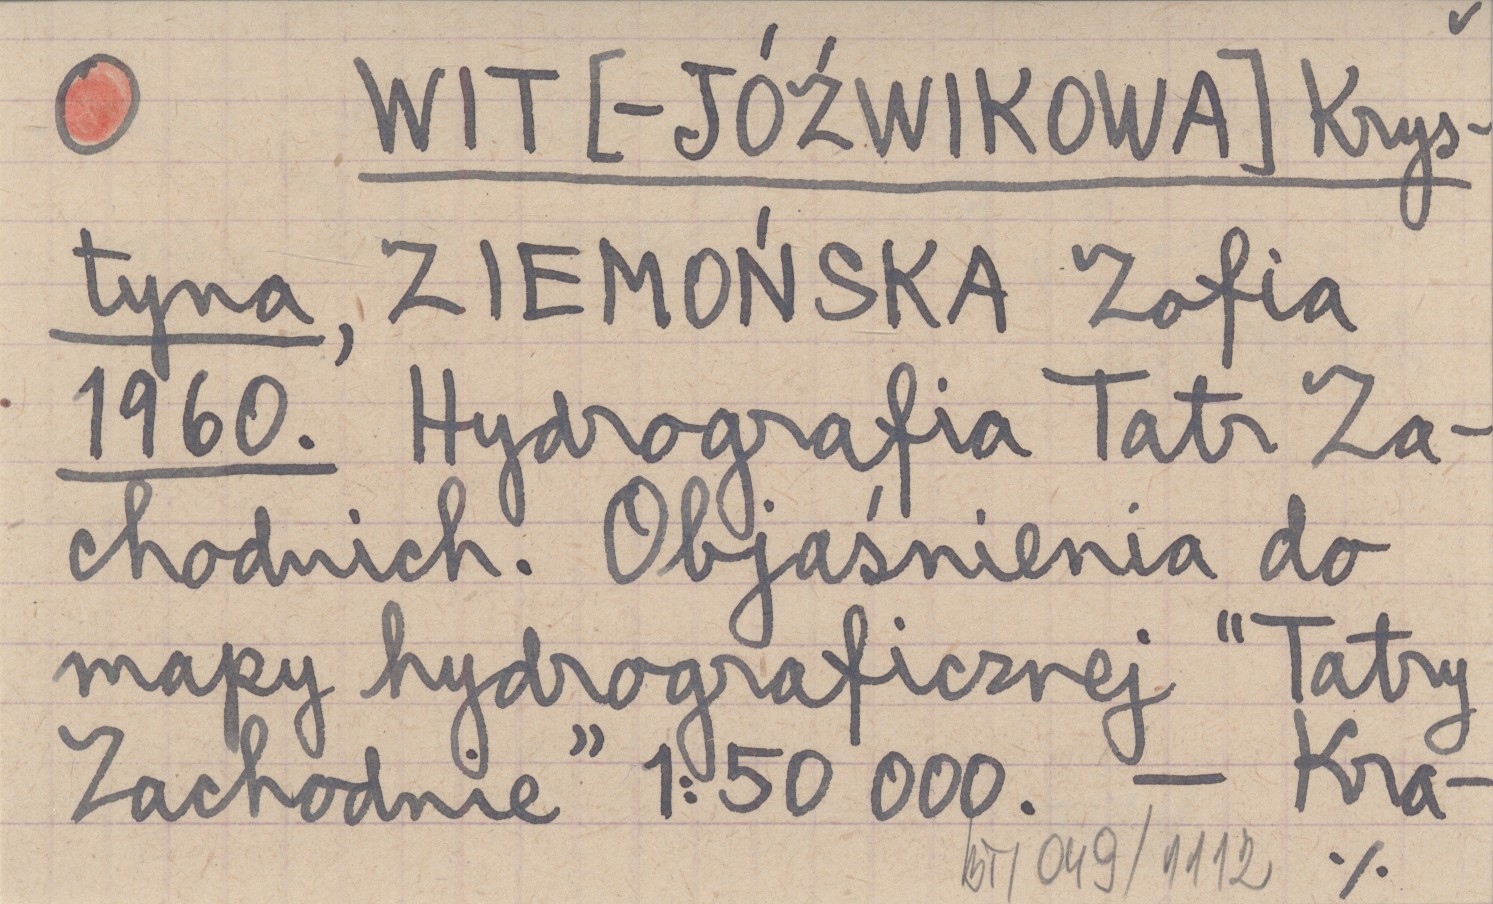 WIT [-JÓŹWIKOWA] Krys-
tyna, ZIEMOŃSKA Zofia
1960. Hydrografia Tatr Za-
chodnich. Objaśnienia do
mapy hydrograficznej "Tatry
Zachodnie" 1:50 000. — Kra-
BT/049/1112 ./.